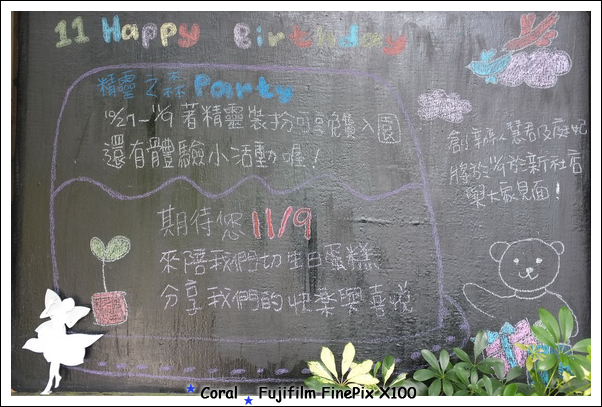 11 Happy Birthday
精靈之森 Party
10/27~11/9 著精靈裝扮可享免費入園
還有體驗小活動喔!
期待您 11/9
來陪我們切生日蛋糕
分享我們的快樂與喜悅
創辦人慧君及庭妃
將於11/9於新社店
與大家見面!
Coral Fujifilm FinePix X100